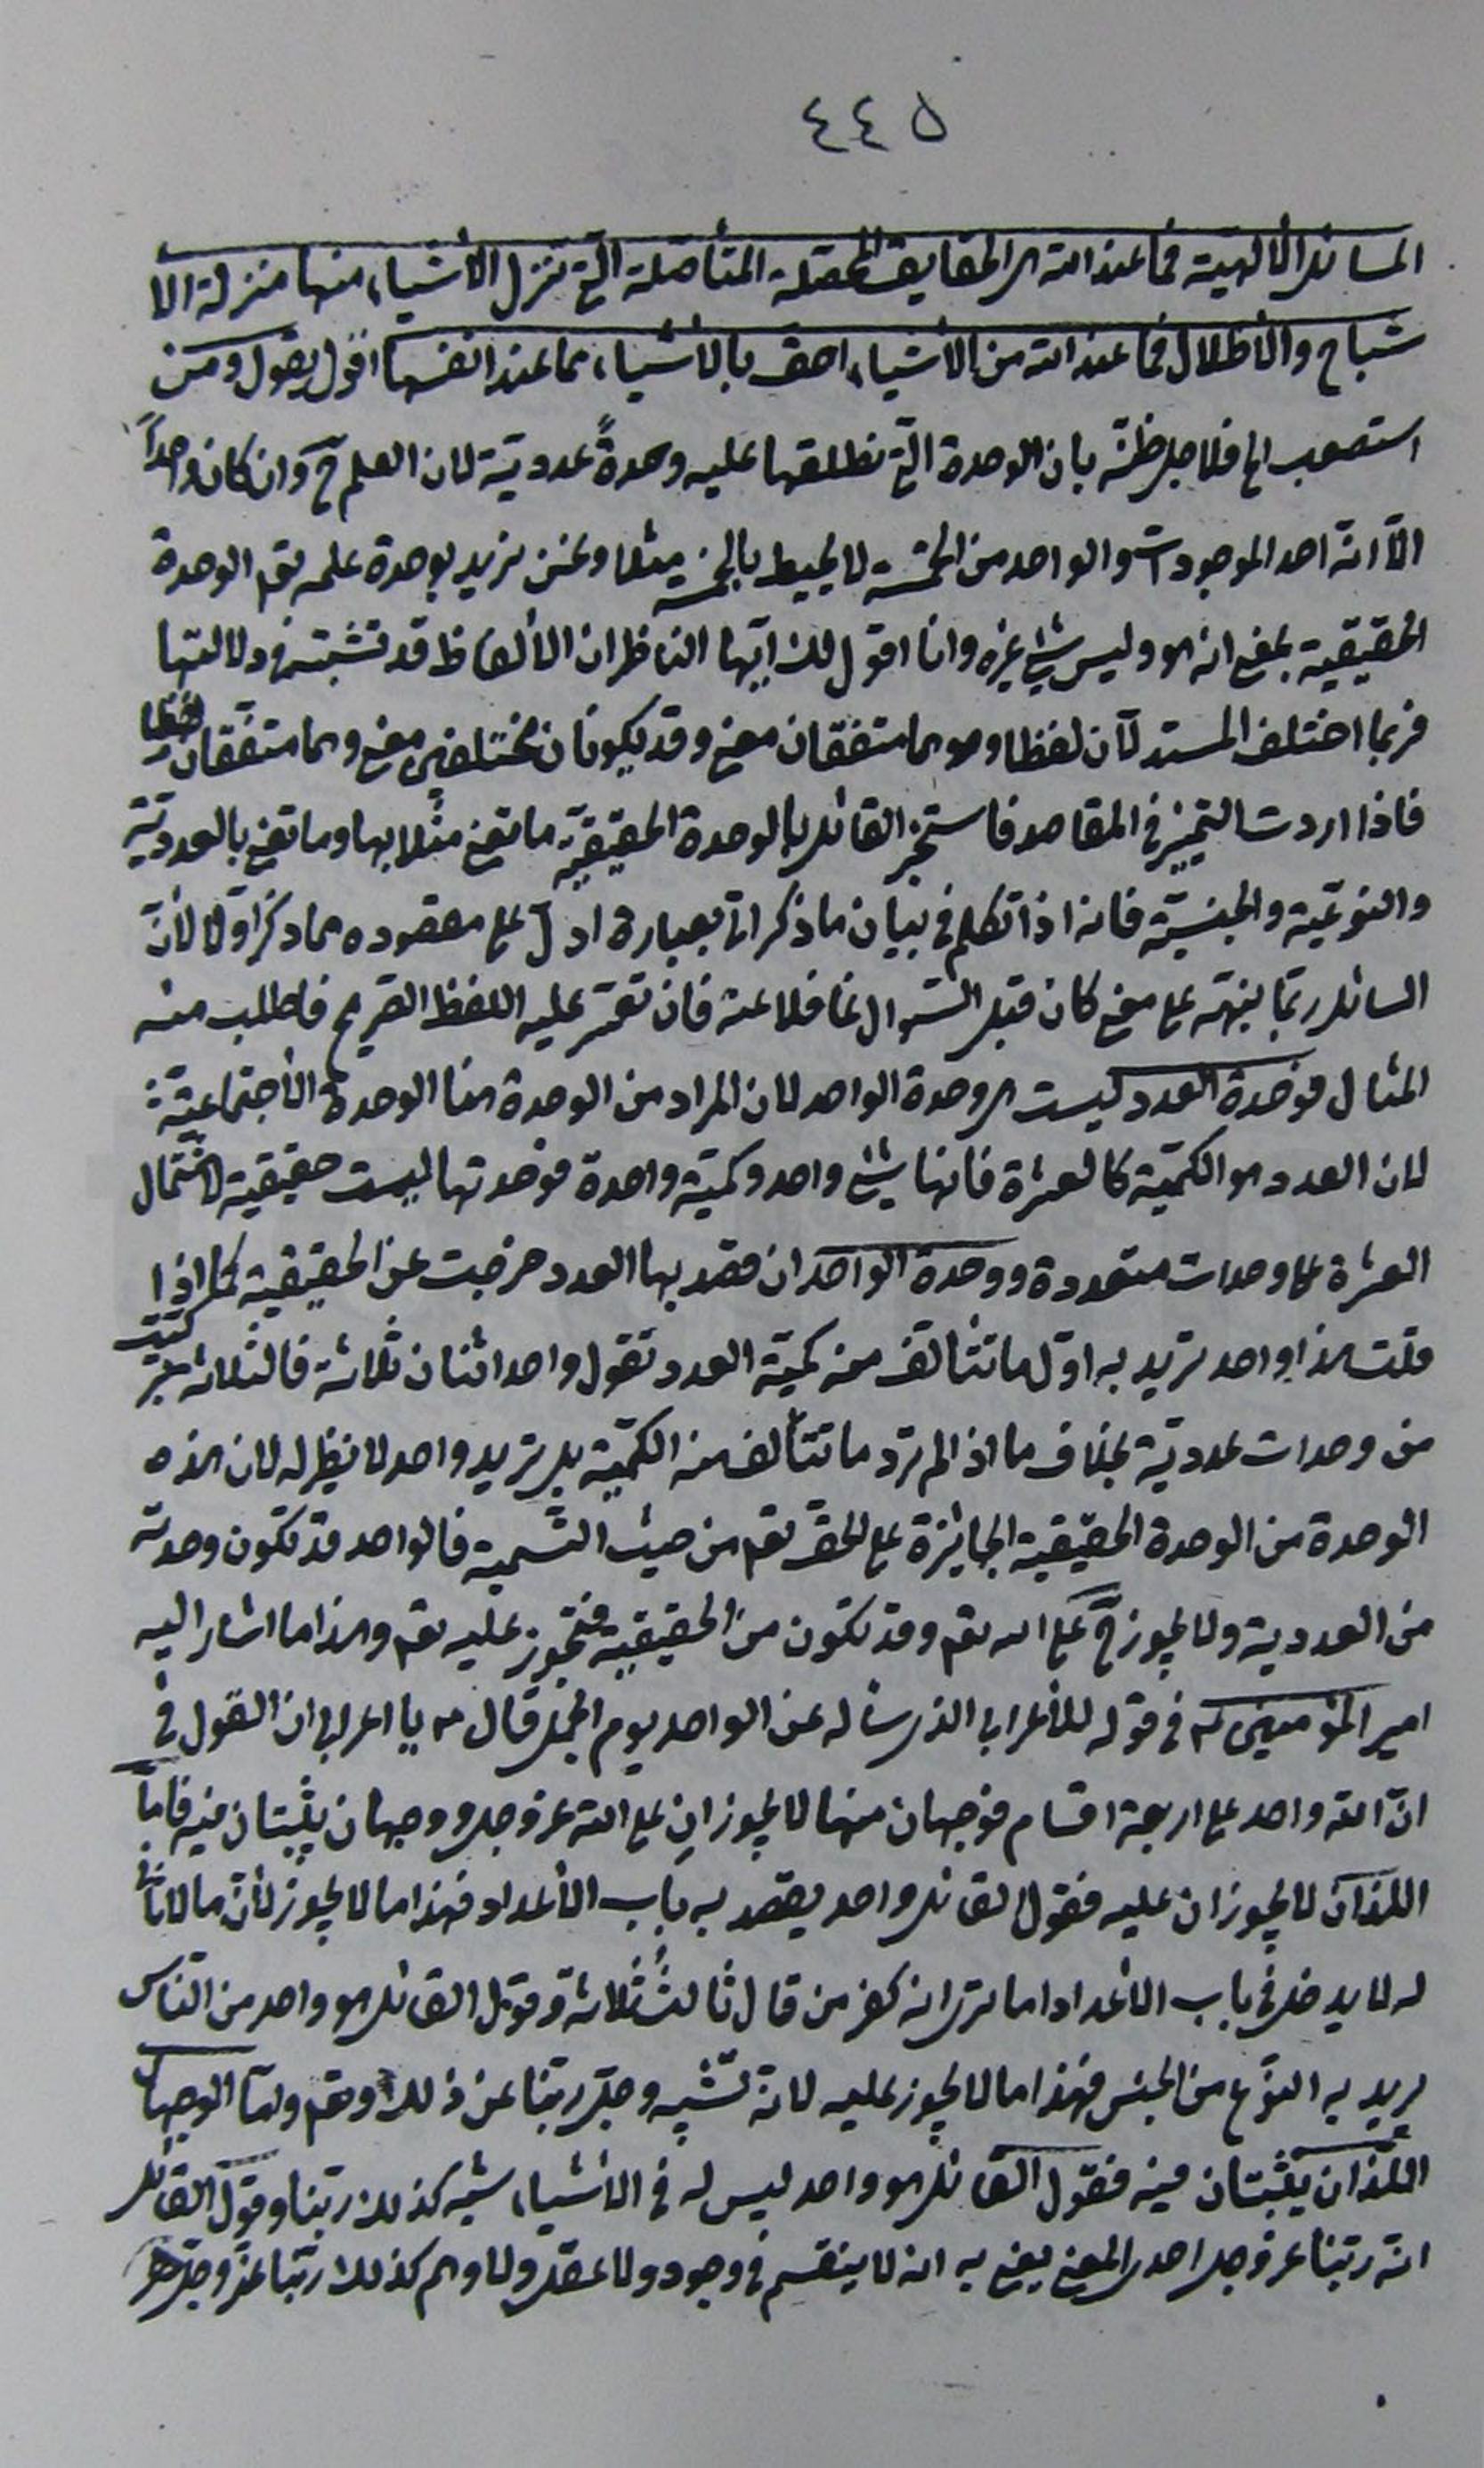 ٤٤٥
المسائل الألهية فما عند الله هى الحقايق المحصلة المتأصلة التى تنزل الأشياء منها منزلة الا
شباح والأظلال فما عند الله من الأشياء احق بالأشياء مما عند انفسها اقول يقول ومن
استصعب الخ فلاجل ظنّه بان الوحدة التى نطلقها عليه وحدةً عددية لان العلم ح وان كان واحداً
الّا انّه احد الموجودات والواحد من الخمسة لا يحيط بالخمسة مثلا ونحن نريد بوحدة علمه تعم الوحدة
الحقيقية بمعنى انه هو وليس شئ غيره وانا اقول لك ايّها الناظر ان الألفاظ قد تشتبه فى دلالتها
فربما اختلف المستدلّان لفظا وهما متفقان معنى وقد يكونان مختلفين معنى وهما متفقان لفظا
فاذا اردت التمييز فى المقاصد فاستخبر القائل بالوحدة الحقيقيّة ما تعنى مثلا بها وما تعنى بالعدديّة
والنوعيّة والجنسيّة فانه اذا تكلم فى بيان ما ذكر اتى بعبارة ادلّ على مقصوده مما ذكر اوّلا لأنّ
السائل ربّما ينبّهه على معنى كان قبل السّؤال غافلا عنه فان تعسّر عليه اللفظ الصّريح فاطلب منه
المثال فوحدة العدد ليست هى وحدة الواحد لان المراد من الوحدة هنا الوحدة الأجتماعيّة
لان العدد هو الكميّة كالعشرة فانها شئ واحد وكميّة واحدة فوحدتها ليست حقيقية لاشتمال
العشرة على وحدات متعددة ووحدة الواحد ان قصد بها العدد خرجت عن الحقيقية كما اذا
قلت هذا واحد تريد به اوّل ما تتألف منه كميّة العدد تقول واحد اثنان ثلاثة فالثلاثة تركبت
من وحدات عدديّة بخلاف ما اذا لم ترد ما تتألف منه الكميّة بل تريد واحد لا نظير له لان هذه
الوحدة من الوحدة الحقيقية الجائزة على الحق تعم من حيث التسمية فالواحد قد تكون وحدته
من العددية ولا يجوز ح على الله تعم وقد تكون من الحقيقية فتجوز عليه تعم وهذا ما اشار اليه
امير المؤمنين ع فى قوله للأعرابى الذى سأله عن الواحد يوم الجمل قال ع يا اعرابى ان القول فى
انّ الله واحد على اربعة اقسام فوجهان منها لا يجوزان على الله عز وجل ووجهان يثبتان فيه فامّا
اللذان لا يجوزان عليه فقول القائل واحد يقصد به باب الأعداد فهذا ما لا يجوز لأنّ ما لا ثانى
له لا يدخل فى باب الأعداد اما ترى انه كفر من قال ثالث ثلاثة وقول القائل هو واحد من الناس
يريد به النوع من الجنس فهذا ما لا يجوز عليه لانّه تشبيه وجلّ ربّنا عن ذلك وتعم وامّا الوجهان
اللذان يثبتان فيه فقول القائل هو واحد ليس له فى الأشياء شبه كذلك ربّنا وقول القائل
انّه ربّنا عز وجل احدى المعنى يعنى به انه لا ينقسم فى وجود ولا عقل ولا وهم كذلك ربّنا عزّ وجلّ